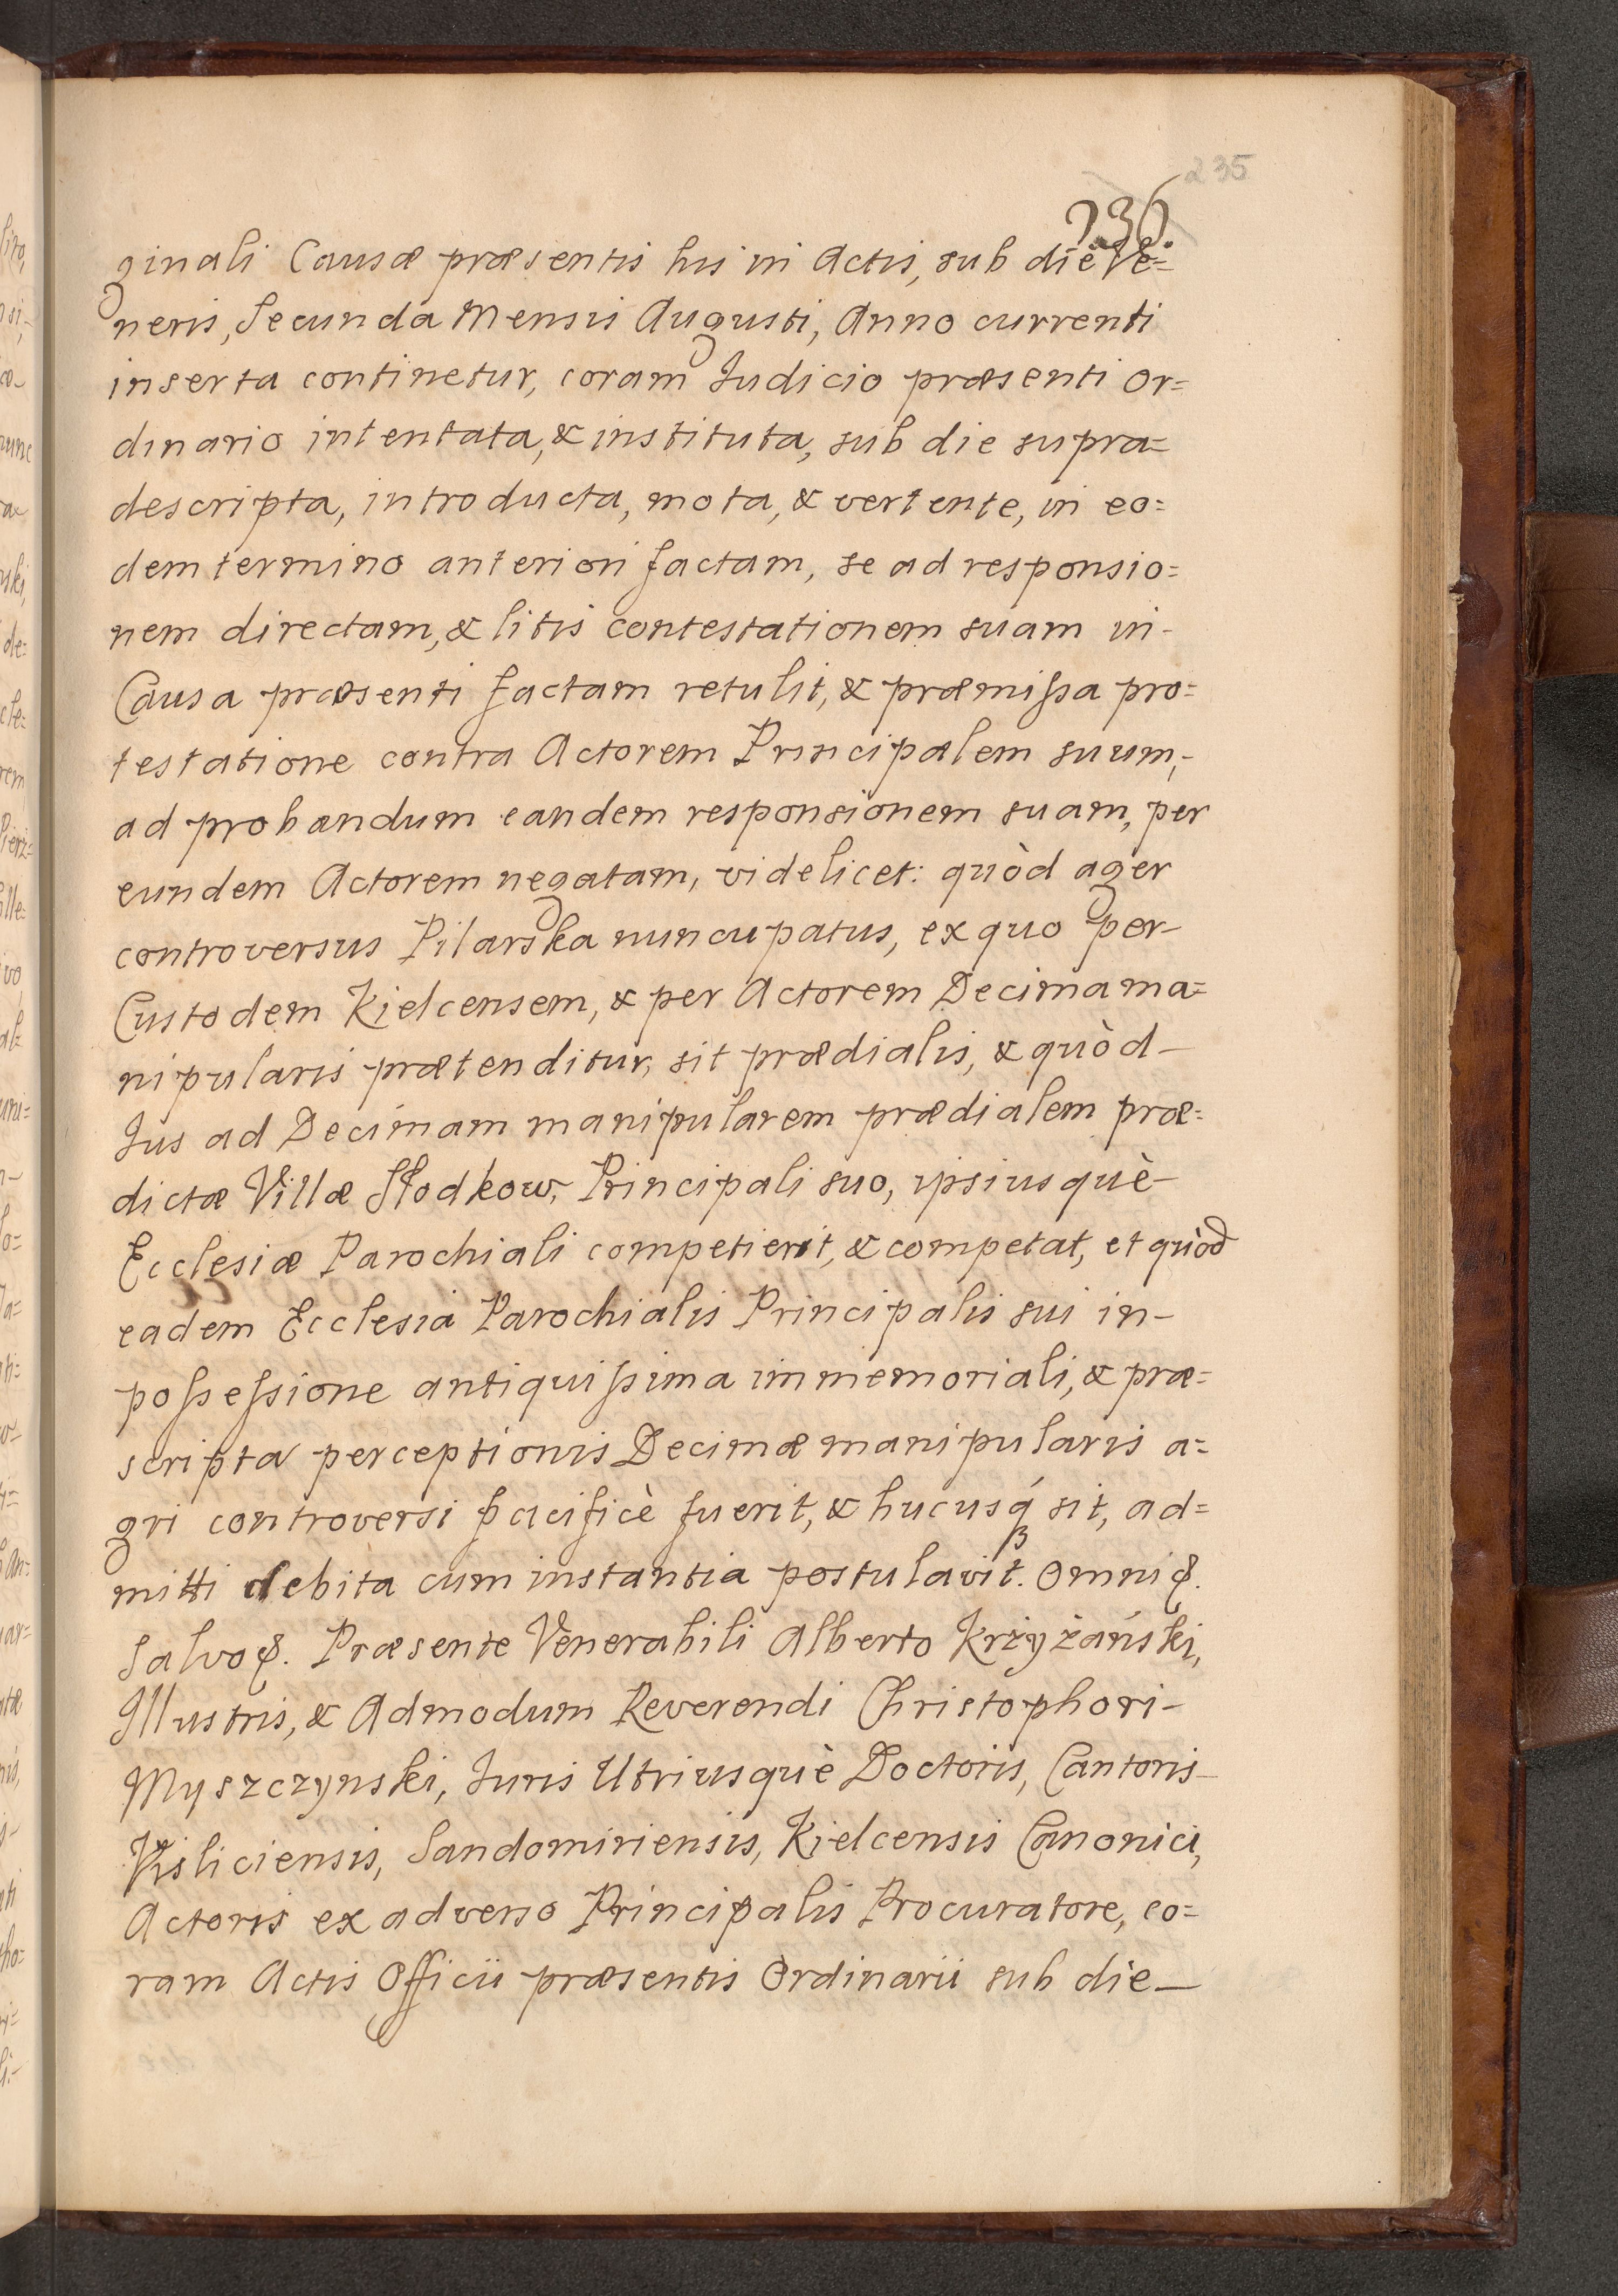 235
236.
ginali Causæ præsentis his in Actis, sub die Ve=
neris, Secunda Mensis Augusti, Anno currenti
inserta continetur, coram Judicio præsenti Or=
dinario intentata, & instituta, sub die supra=
descripta, introducta, mota, & vertente, in eo=
dem termino anteriori factam, se ad responsio=
nem directam, & litis contestationem suam in-
Causa præsenti factam retulit, & præmissa pro=
testatione contra Actorem Principalem suum,-
ad probandum eandem responsionem suam, per
eundem Actorem negatam, videlicet: quòd ager
controversus Pilarska nuncupatus, ex quo per-
Custodem Kielcensem, & per Actorem Decima ma=
nipularis prætenditur, sit prædialis, & quòd-
Jus ad Decimam manipularem prædialem præ=
dictæ Villæ Słodkow, Principali suo, ipsiusquè-
Ecclesiæ Parochiali competierit, & competat, et quòd
eadem Ecclesia Parochialis Principalis sui in-
possessione antiquissima immemoriali, & præ=
scripta perceptionis Decimæ manipularis a=
gri controversi pacificè fuerit, & hucusq́ sit, ad=
mitti debita cum instantia postulavit. Omni &.
Salvo &. Præsente Venerabili Alberto Krzyżański,
Illustris, & Admodum Reverendi Christophori-
Myszczynski, Juris Utriusquè Doctoris, Cantoris-
Visliciensis, Sandomiriensis, Kielcensis Canonici,
Actoris ex adverso Principalis Procuratore, co=
ram Actis Officii præsentis Ordinarii sub die-